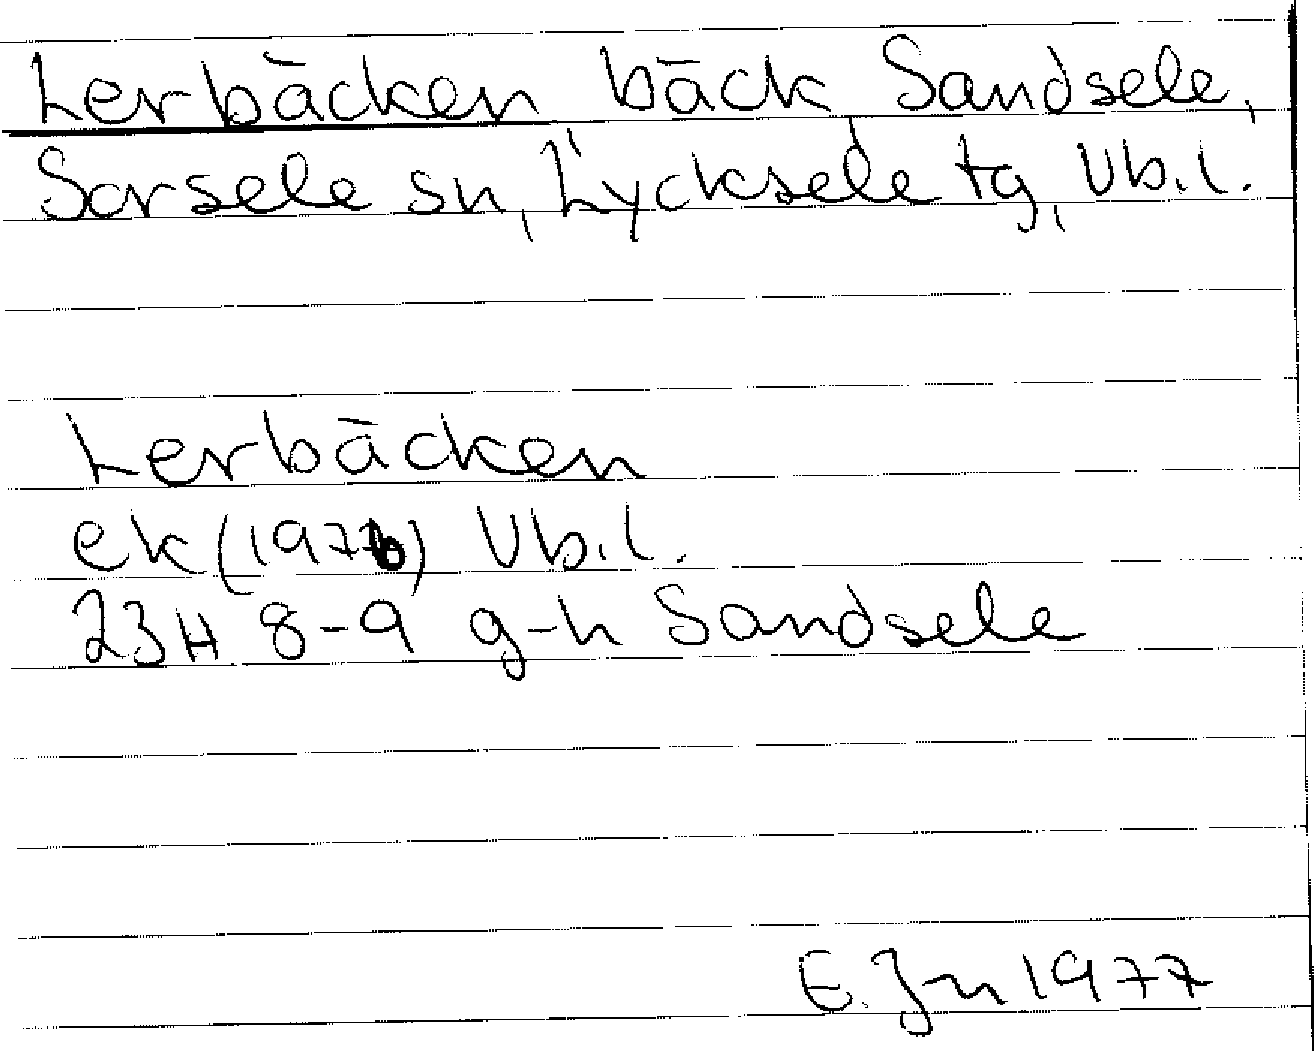 Lerbäcken bäck Sandsele,
Sorsele sn, Lycksele tg, Vb.l.
Lerbäcken
ek (1976) Vb.l.
23H 8-9 g-h Sandsele
E. Jn 1977